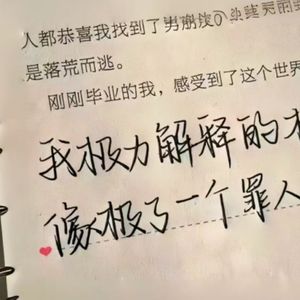 人都恭喜我找到了男朋友
是落荒而逃。
刚刚毕业的我，感受到了这个世界
我极力解释的
像极了一个罪人